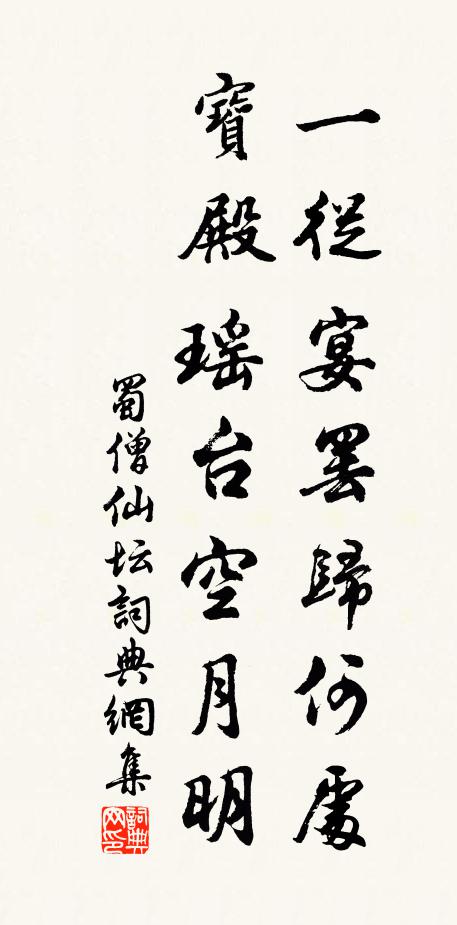 一從宴罷歸何處
寶殿瑶台空月明
蜀僧仙坛詞典網集
詞典网印